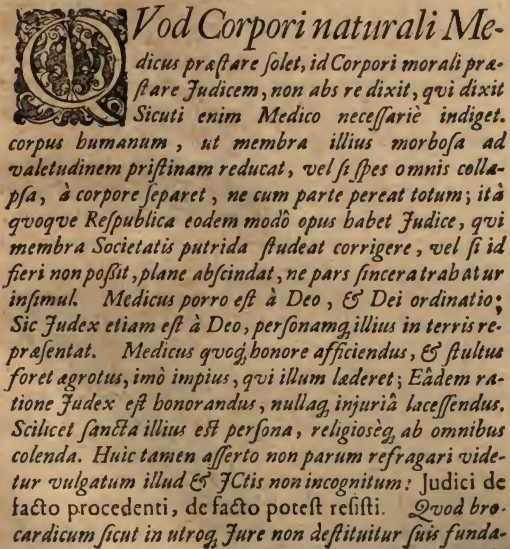 QVod Corpori naturali Me-
dicus præſtare ſolet, id Corpori morali præ-
ſtare Judicem, non abs re dixit, qvi dixit
Sicuti enim Medico neceſſariè indiget.
corpus humanum, ut membra illius morboſa ad
valetudinem priſtinam reducat, vel ſi ſpes omnis colla-
pſa, à corpore ſeparet, ne cum parte pereat totum; ità
qvoqve Reſpublica eodem modò opus habet Judice, qvi
membra Societatis putrida ſtudeat corrigere, vel ſi id
fieri non poßit, plane abſcindat, ne pars ſincera trahatur
inſimul. Medicus porro eſt à Deo, & Dei ordinatio;
Sic Judex etiam eſt à Deo, perſonamq́; illius in terris re-
præſentat. Medicus quoq́; honore afficiendus, & ſtultus
foret ægrotus, imò impius, qvi illum læderet; Eâdem ra-
tione Judex eſt honorandus, nullaq́; injuriâ laceſſendus.
Scilicet ſancta illius eſt perſona, religioſèq́; ab omnibus
colenda. Huic tamen aſſerto non parum refragari vide-
tur vulgatum illud & JCtis non incognitum: Judici de
facto procedenti, de facto poteſt reſiſti. Qvod bro-
cardicum ſicut in utroq́; Jure non deſtituitur ſuis funda-